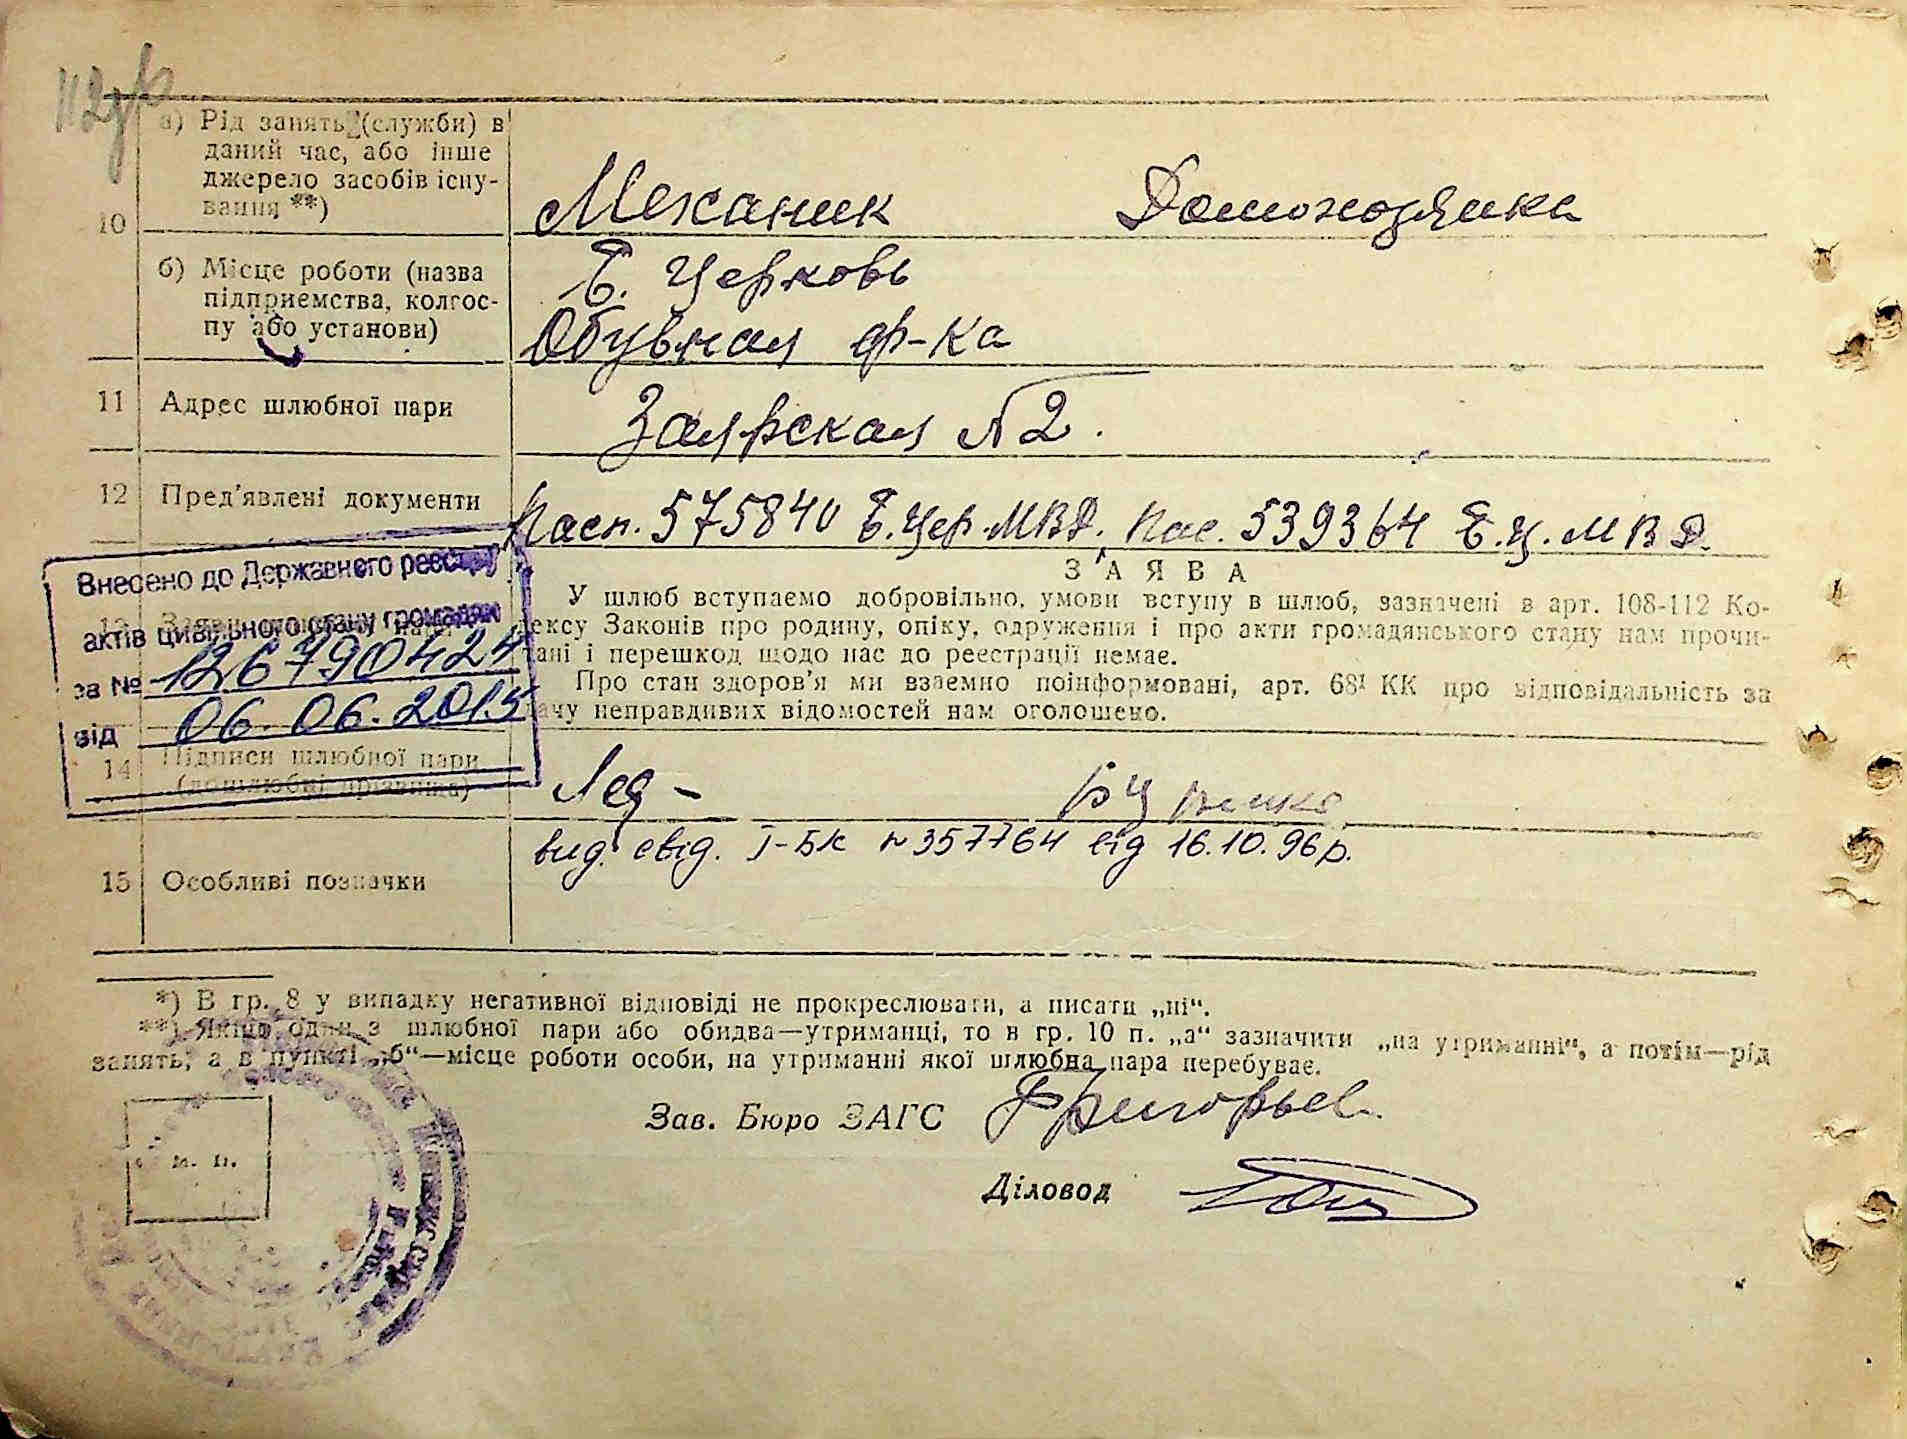 а) Рід занять (служби) в
даний час, або інше
джерело засобів існу-
вання **)
10
Механик Домохозяйка
б) Місце роботи (назва
підприємства, колгос-
пу або установи)
Б. Церковь
Обувная ф-ка
11 Адрес шлюбної пари
Заярская № 2.
12 Пред'явлені документи
Пасп. 575840 Б.Цер.МВД. Пас. 539364 Б.Ц.МВД.
Внесено до Державного реєстру
актів цивільного стану громадян
за № 126790424
від 06.06.2015
ЗАЯВА
У шлюб вступаємо добровільно, умови вступу в шлюб, зазначені в арт. 108-112 Ко-
дексу Законів про родину, опіку, одруження і про акти громадянського стану нам прочи-
тані і перешкод щодо нас до реєстрації немає.
Про стан здоров'я ми взаємно поінформовані, арт. 68¹ КК про відповідальність за
дачу неправдивих відомостей нам оголошено.
14 Підписи шлюбної пари
(дошлюбні прізвища)
15 Особливі позначки
вид. свід. I-БК №357764 від 16.10.96р.
*) В гр. 8 у випадку негативної відповіді не прокреслювати, а писати „ні“.
**) Якщо один з шлюбної пари або обидва—утриманці, то в гр. 10 п. „а“ зазначити „на утриманні“, а потім—рід
занять, а в пункті „б“—місце роботи особи, на утриманні якої шлюбна пара перебуває.
Зав. Бюро ЗАГС
Діловод
м. п.